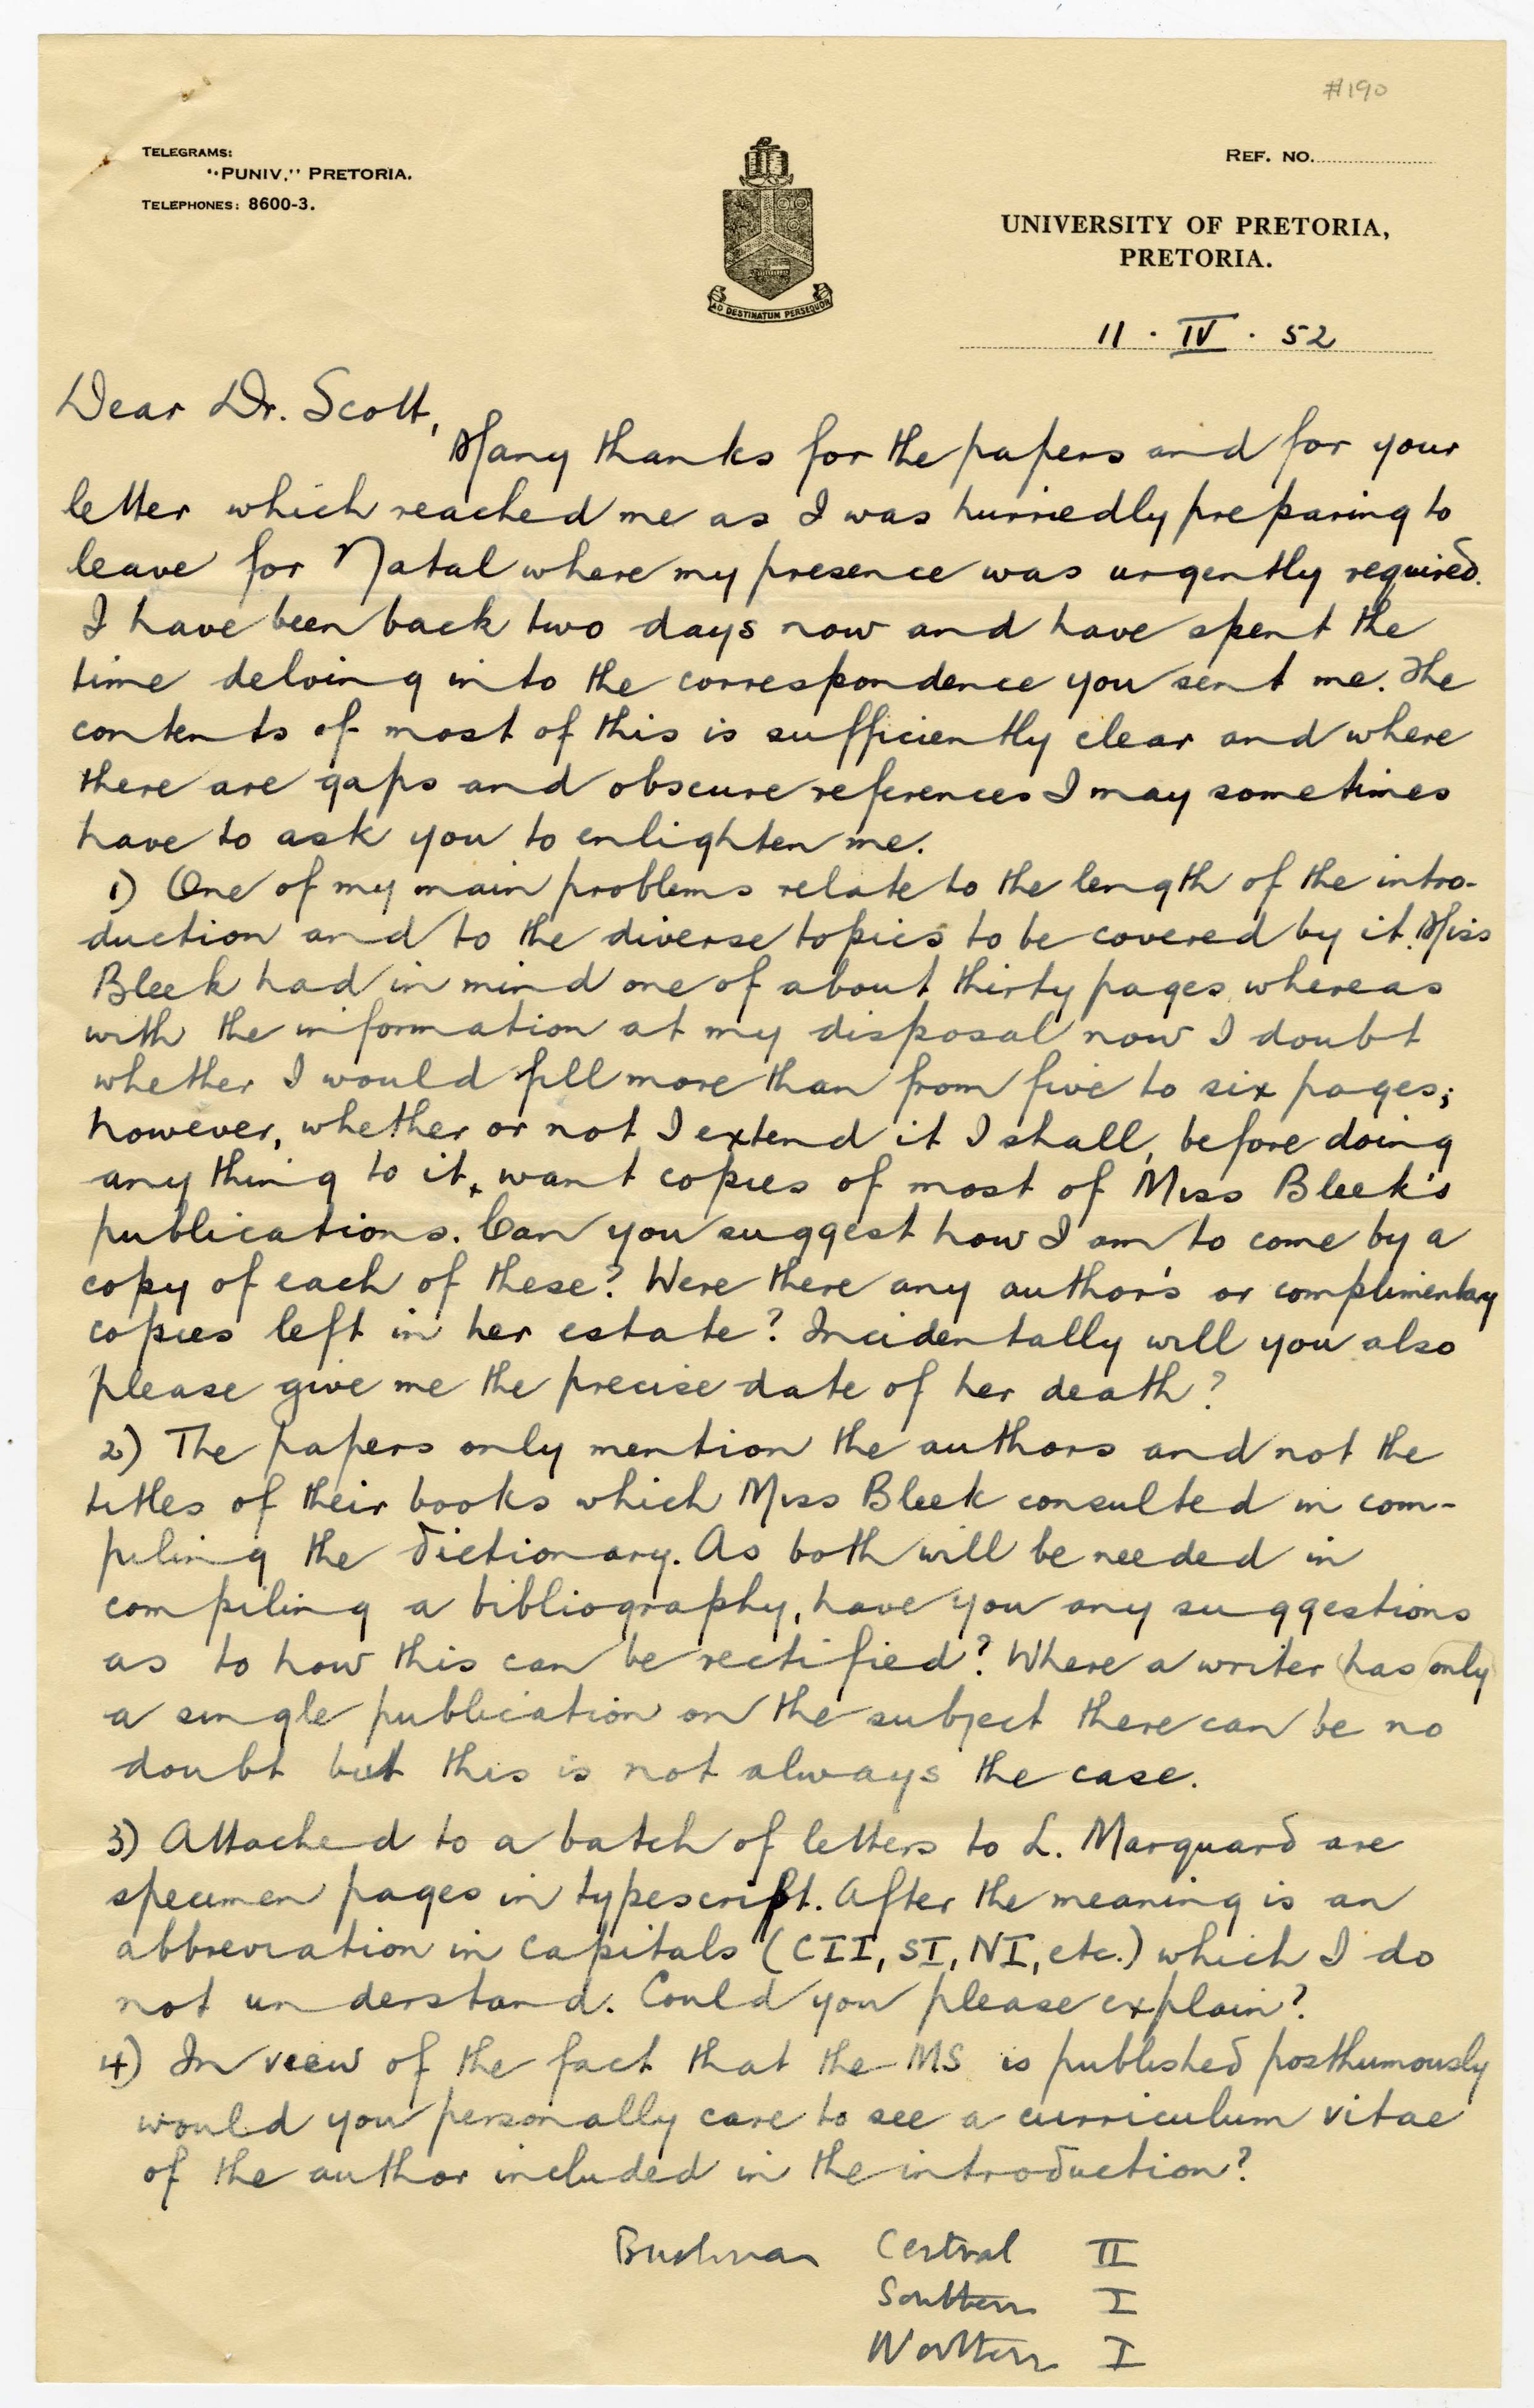 #190
TELEGRAMS:
"PUNIV," PRETORIA.
TELEPHONES: 8600-3.
REF. NO.
UNIVERSITY OF PRETORIA,
PRETORIA.
AD DESTINATUM PERSEQUOR
11 · IV · 52
Dear Dr. Scott,
Many thanks for the papers and for your
letter which reached me as I was hurriedly preparing to
leave for Natal where my presence was urgently required.
I have been back two days now and have spent the
time delving into the correspondence you sent me. The
contents of most of this is sufficiently clear and where
there are gaps and obscure references I may sometimes
have to ask you to enlighten me.
1) One of my main problems relate to the length of the intro-
duction and to the diverse topics to be covered by it. Miss
Bleek had in mind one of about thirty pages whereas
with the information at my disposal now I doubt
whether I would fill more than from five to six pages;
however, whether or not I extend it I shall, before doing
any thing to it, want copies of most of Miss Bleek's
publications. Can you suggest how I am to come by a
copy of each of these? Were there any author's or complimentary
copies left in her estate? Incidentally will you also
please give me the precise date of her death?
2) The papers only mention the authors and not the
titles of their books which Miss Bleek consulted in com-
piling the dictionary. As both will be needed in
compiling a bibliography, have you any suggestions
as to how this can be rectified? Where a writer has only
a single publication on the subject there can be no
doubt but this is not always the case.
3) Attached to a batch of letters to L. Marquard are
specimen pages in typescript. After the meaning is an
abbreviation in capitals (CII, SI, NI, etc.) which I do
not understand. Could you please explain?
4) In view of the fact that the MS is published posthumously
would you personally care to see a curriculum vitae
of the author included in the introduction?
Bushman Central II
Southern I
Northern I